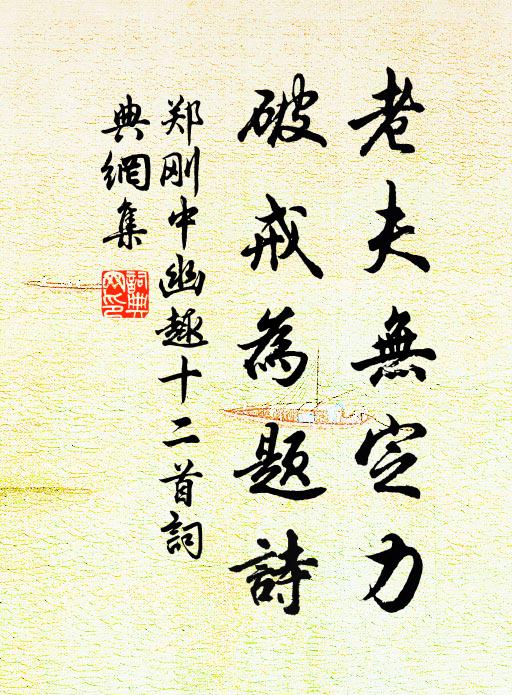 老夫無定力
破戒為题詩
郑刚中幽趣十二首詞
典網集
詞典網印